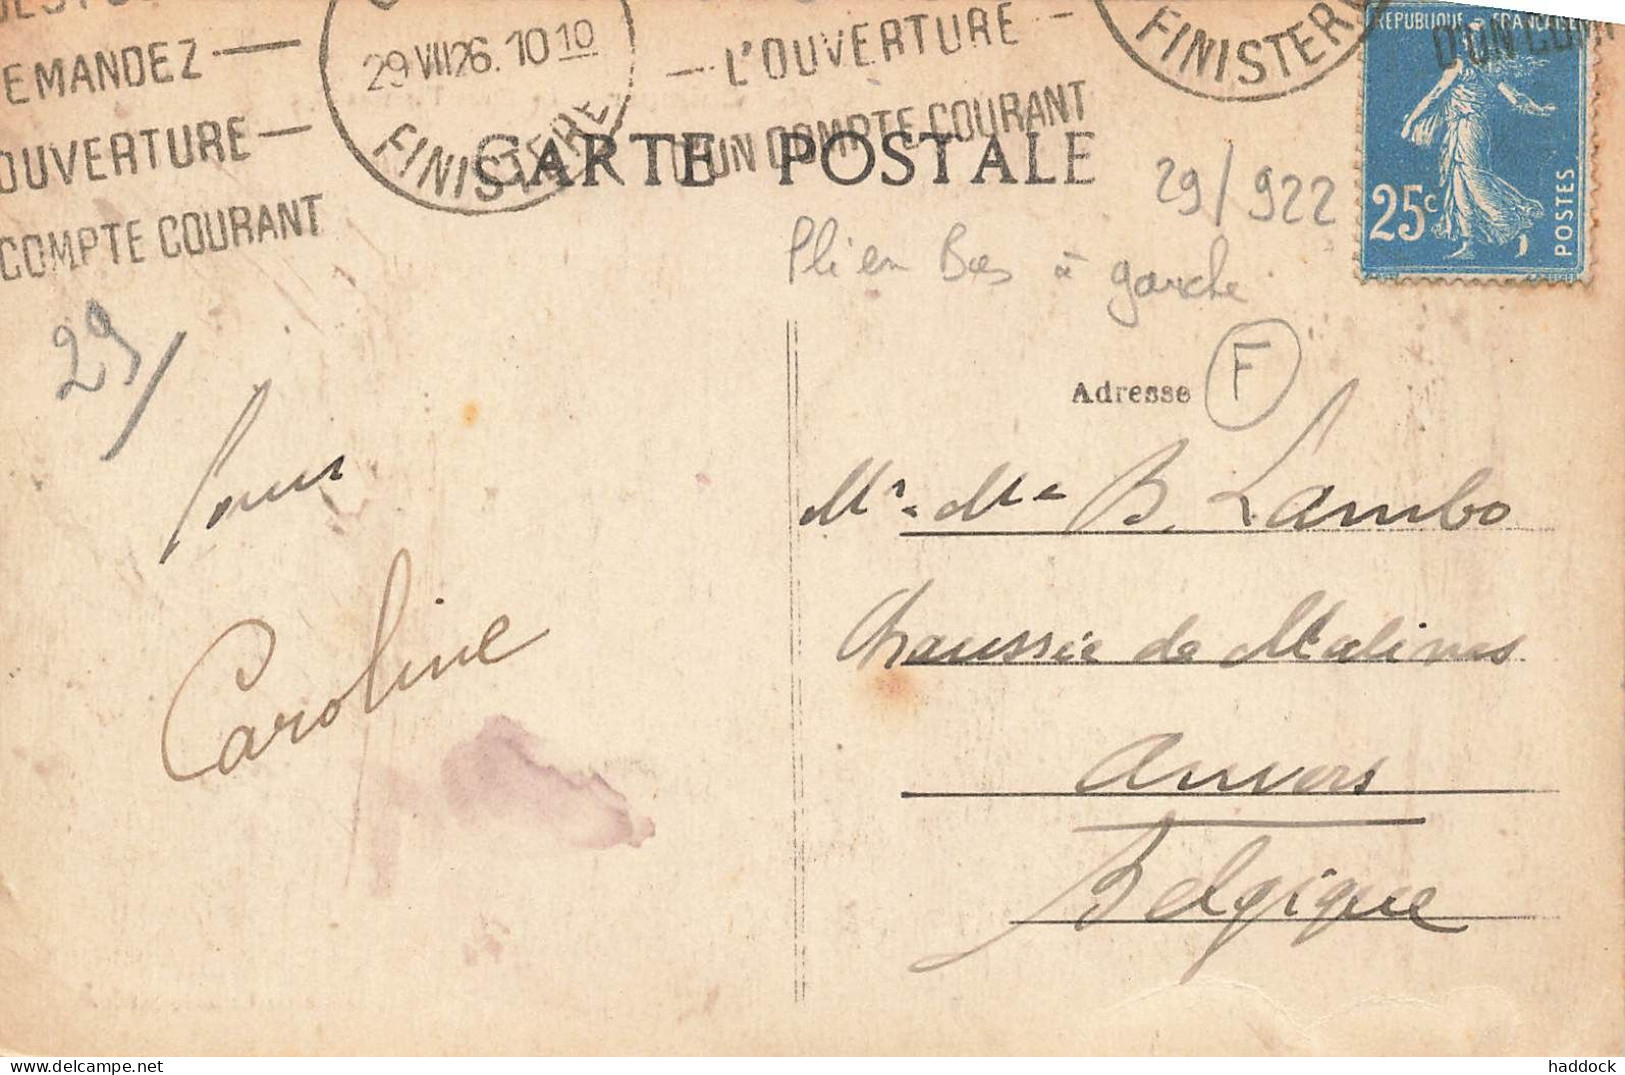 DEMANDEZ —
OUVERTURE —
COMPTE COURANT
29 VII 26. 10 10
FINISTERE
— L'OUVERTURE —
D'UN COMPTE COURANT
FINISTERE
REPUBLIQUE FRANCAISE
D'UN COMP
25c
POSTES
CARTE POSTALE
29/922
Pli en Bas à gauche
29/
Adresse
F
Mr. Me B. Lambo
Chaussée de Malines
Anvers
Belgique
Pour
Caroline
haddock